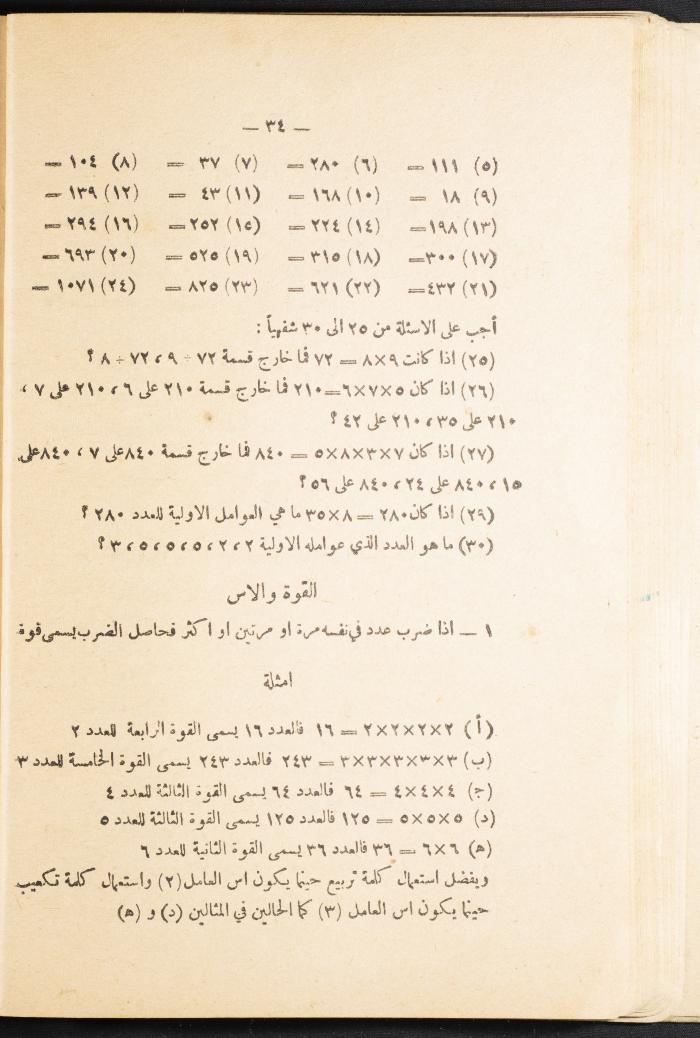 — ٣٤ —
(٥) ١١١ = (٦) ٢٨٠ = (٧) ٣٧ = (٨) ١٠٤ =
(٩) ١٨ = (١٠) ١٦٨ = (١١) ٤٣ = (١٢) ١٣٩ =
(١٣) ١٩٨ = (١٤) ٢٢٤ = (١٥) ٢٥٢ = (١٦) ٢٩٤ =
(١٧) ٣٠٠ = (١٨) ٣١٥ = (١٩) ٥٢٥ = (٢٠) ٦٩٣ =
(٢١) ٤٣٢ = (٢٢) ٦٢١ = (٢٣) ٨٢٥ = (٢٤) ١٠٧١ =
أجب على الاسئلة من ٢٥ الى ٣٠ شفهياً :
(٢٥) اذا كانت ٩×٨ = ٧٢ فما خارج قسمة ٧٢ ÷ ٩ ، ٧٢ ÷ ٨ ؟
(٢٦) اذا كان ٥×٧×٦=٢١٠ فما خارج قسمة ٢١٠ على ٦ ، ٢١٠ على ٧ ،
٢١٠ على ٣٥ ، ٢١٠ على ٤٢ ؟
(٢٧) اذا كان ٧×٣×٨×٥ = ٨٤٠ فما خارج قسمة ٨٤٠ على ٧ ، ٨٤٠ على
١٥ ، ٨٤٠ على ٢٤ ، ٨٤٠ على ٥٦ ؟
(٢٩) اذا كان ٢٨٠ = ٨×٣٥ ما هي العوامل الاولية للعدد ٢٨٠ ؟
(٣٠) ما هو العدد الذي عوامله الاولية ٢ ، ٢ ، ٥ ، ٥ ، ٥ ، ٣ ؟
القوة والاس
١ — اذا ضرب عدد في نفسه مرة او مرتين او اكثر فحاصل الضرب يسمى قوة
امثلة
(أ) ٢×٢×٢×٢ = ١٦ فالعدد ١٦ يسمى القوة الرابعة للعدد ٢
(ب) ٣×٣×٣×٣×٣ = ٢٤٣ فالعدد ٢٤٣ يسمى القوة الخامسة للعدد ٣
(ج) ٤×٤×٤ = ٦٤ فالعدد ٦٤ يسمى القوة الثالثة للعدد ٤
(د) ٥×٥×٥ = ١٢٥ فالعدد ١٢٥ يسمى القوة الثالثة للعدد ٥
(ه) ٦×٦ = ٣٦ فالعدد ٣٦ يسمى القوة الثانية للعدد ٦
ويفضل استعمال كلمة تربيع حينما يكون اس العامل (٢) واستعمال كلمة تكعيب
حينما يكون اس العامل (٣) كما الحالين في المثالين (د) و (ه)